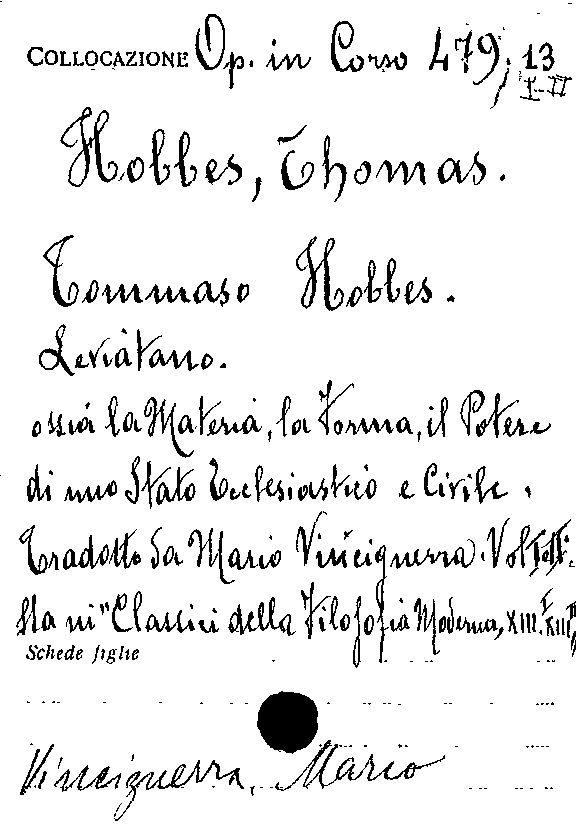 COLLOCAZIONE Op. in Corso 479, 13
I-II
Hobbes, Thomas.
Tommaso Hobbes.
Leviatano.
ossia la Materia, la Forma, il Potere
di uno Stato Ecclesiastico e Civile.
Tradotto da Mario Vinciguerra. Vol
Sta in "Classici della Filosofia Moderna, XIII
Schede figlie
Vinciguerra, Mario